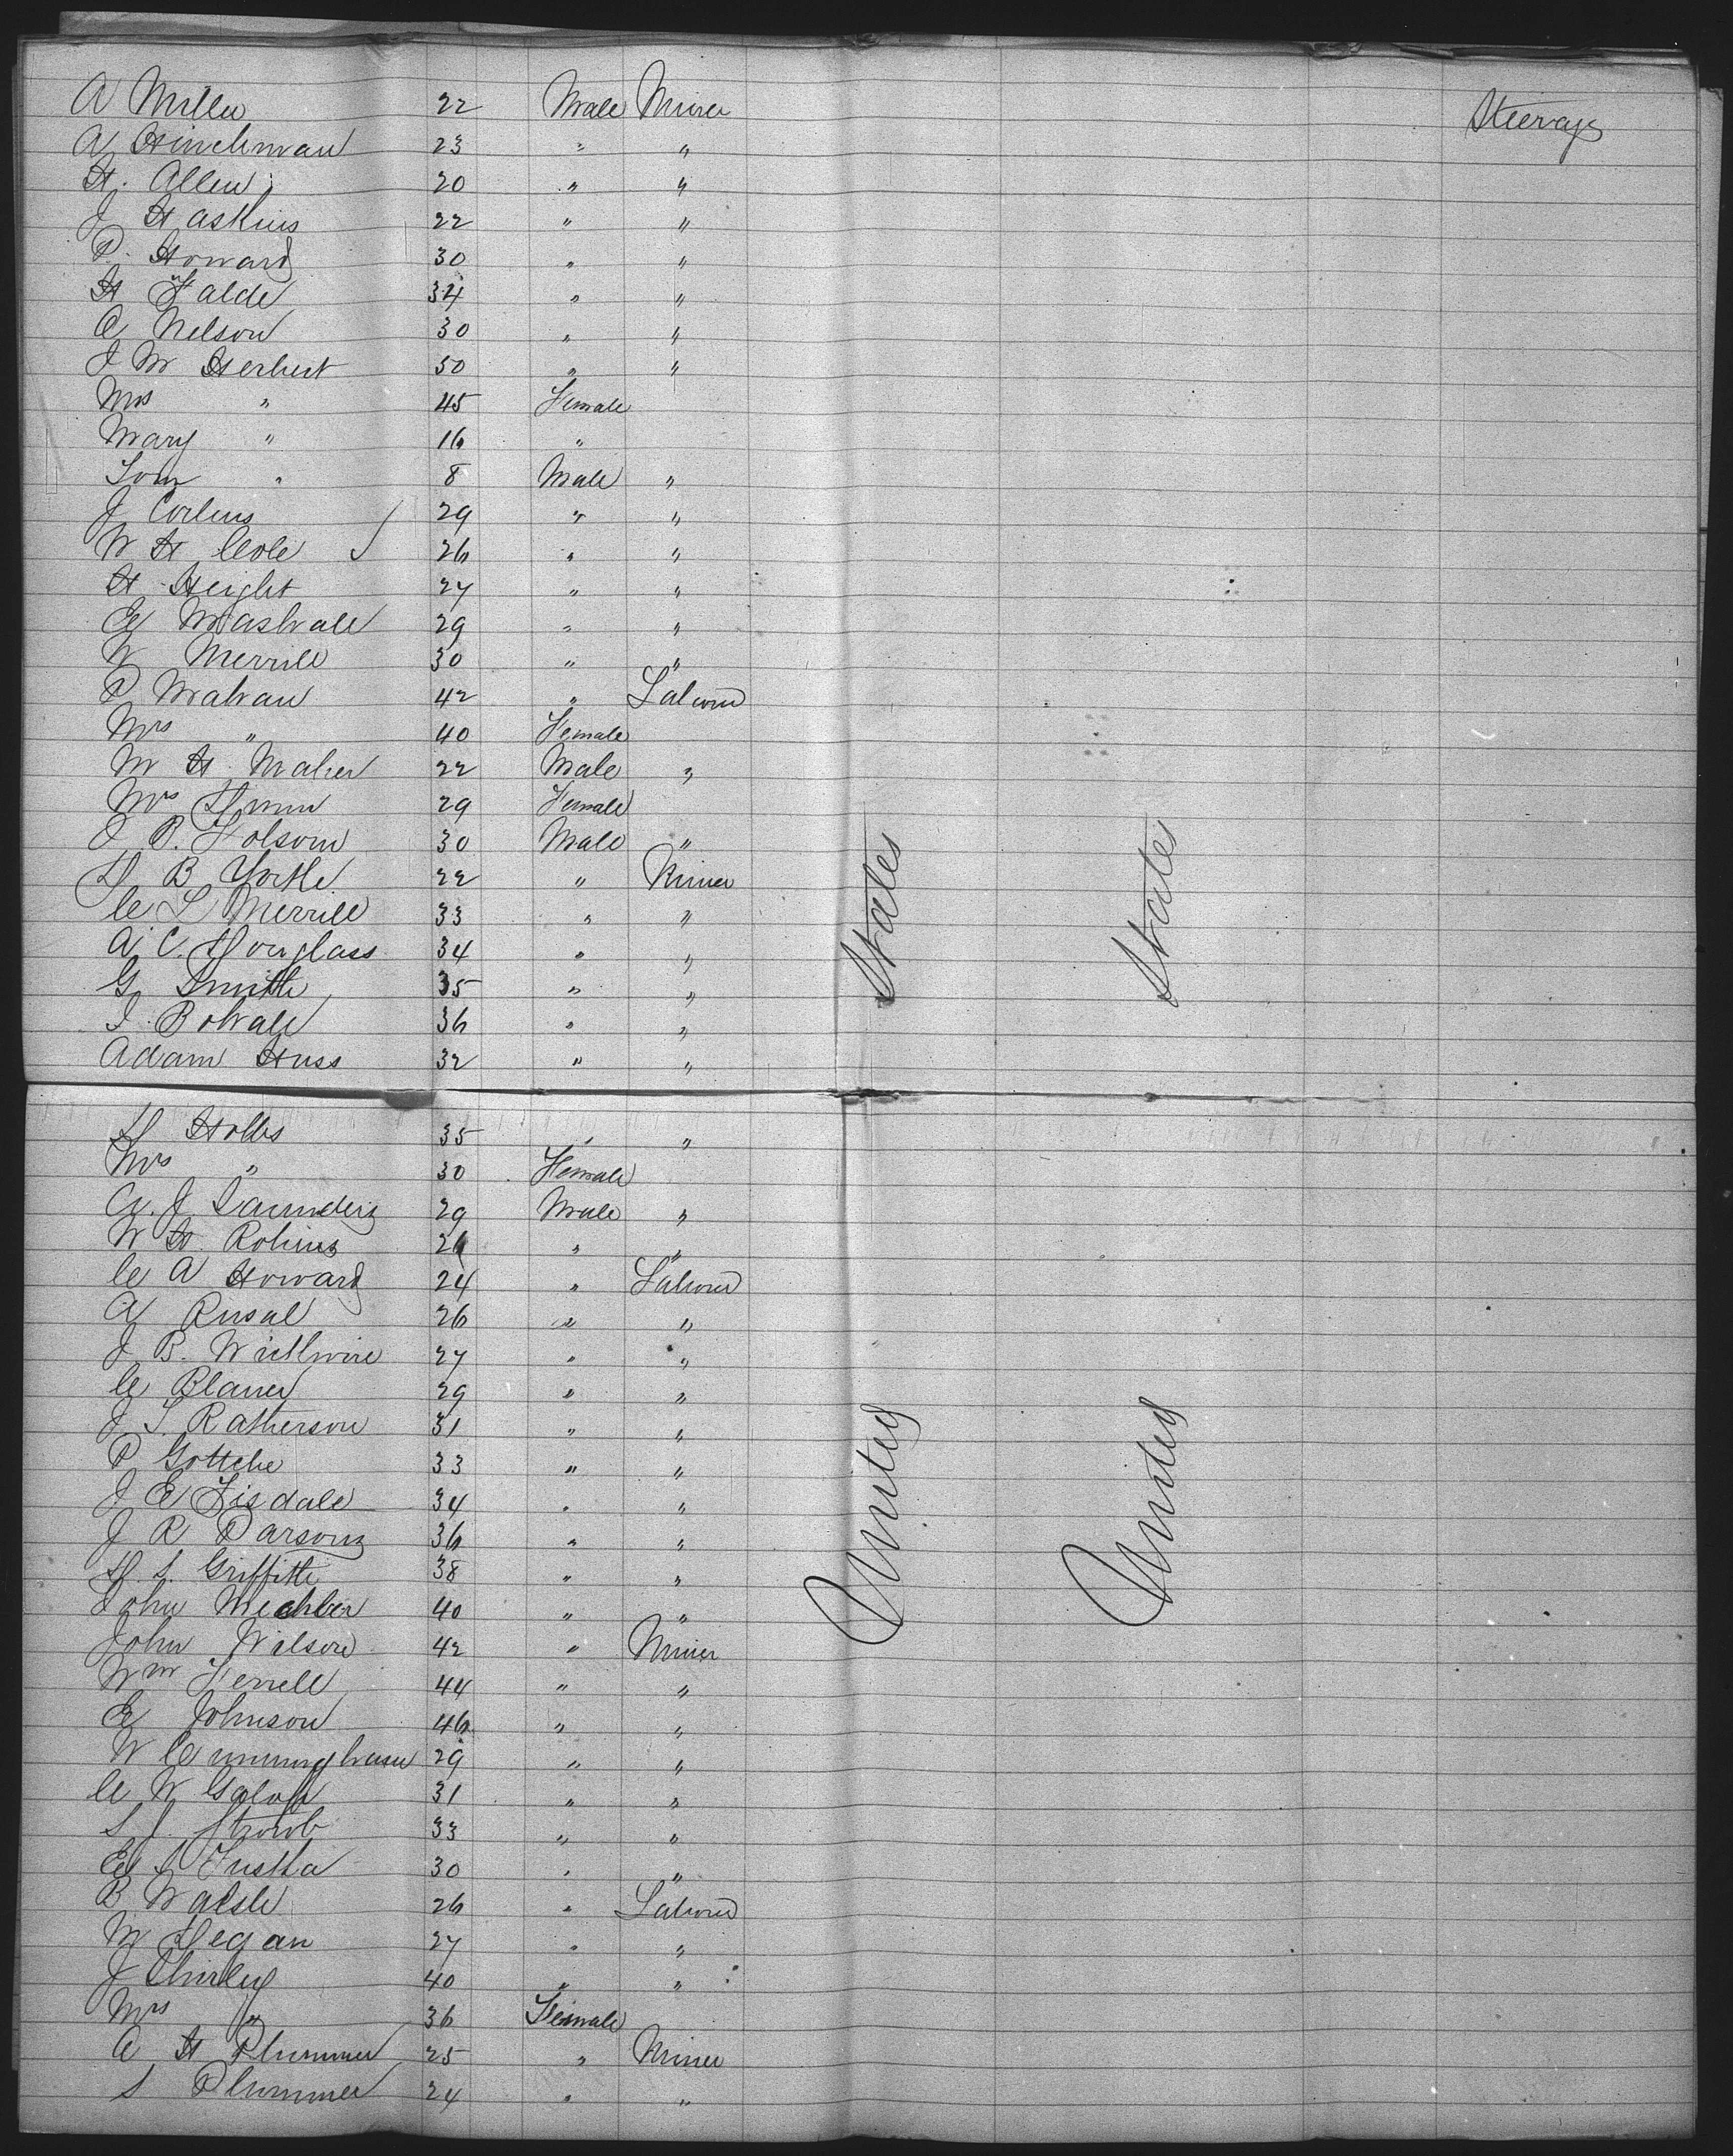 A Miller 22 Male Miner Steerage
A Hinchman 23 " "
H. Allen 20 " "
J Haskins 22 " "
P. Howard 30 " "
H Falde 34 " "
A Nelson 30 " "
J M Herbert 50 " "
Mrs " 45 Female
Mary " 16 "
Tom " 8 Male "
J Corlens 29 " "
W H Cole 26 " "
H Height 27 " "
E Mashall 29 " "
W Merrill 30 " "
P Mahan 42 " Laborer
Mrs " 40 Female
M H Maher 22 Male "
Mrs 29 Female
J B. Folsom 30 Male "
D B York 22 " Miner
C L Merrill 33 " "
A. C. Douglass 34 " "
G Smith 35 " "
J. Bohall 36 " "
Adam Huss 32 " "
D Hobbs 35 " "
Mrs " 30 Female
A. J Saunders 29 Male "
W H. Robins " "
C A Howard 24 " Laborer
A Rusal 26 " "
J B. 27 " "
C 29 " "
J S. Ratherson 31 " "
P Gottche 33 " "
J E Tisdale 34 " "
J R Parsons 36 " "
D. S. Griffith 38 " "
John Mechler 40 " "
John Wilson 42 " Miner
Wm Ferrell 44 " "
E Johnson 46 " "
W Cunningham 29 " "
C W 31 " "
S J. Stroub 33 " "
E S 30 " "
B Walsh 26 " Laborer
M Degan 27 " "
J Shirley 40 " "
Mrs " 36 Female
A H Plummer 25 " Miner
S Plummer 24 " "
United States
United States